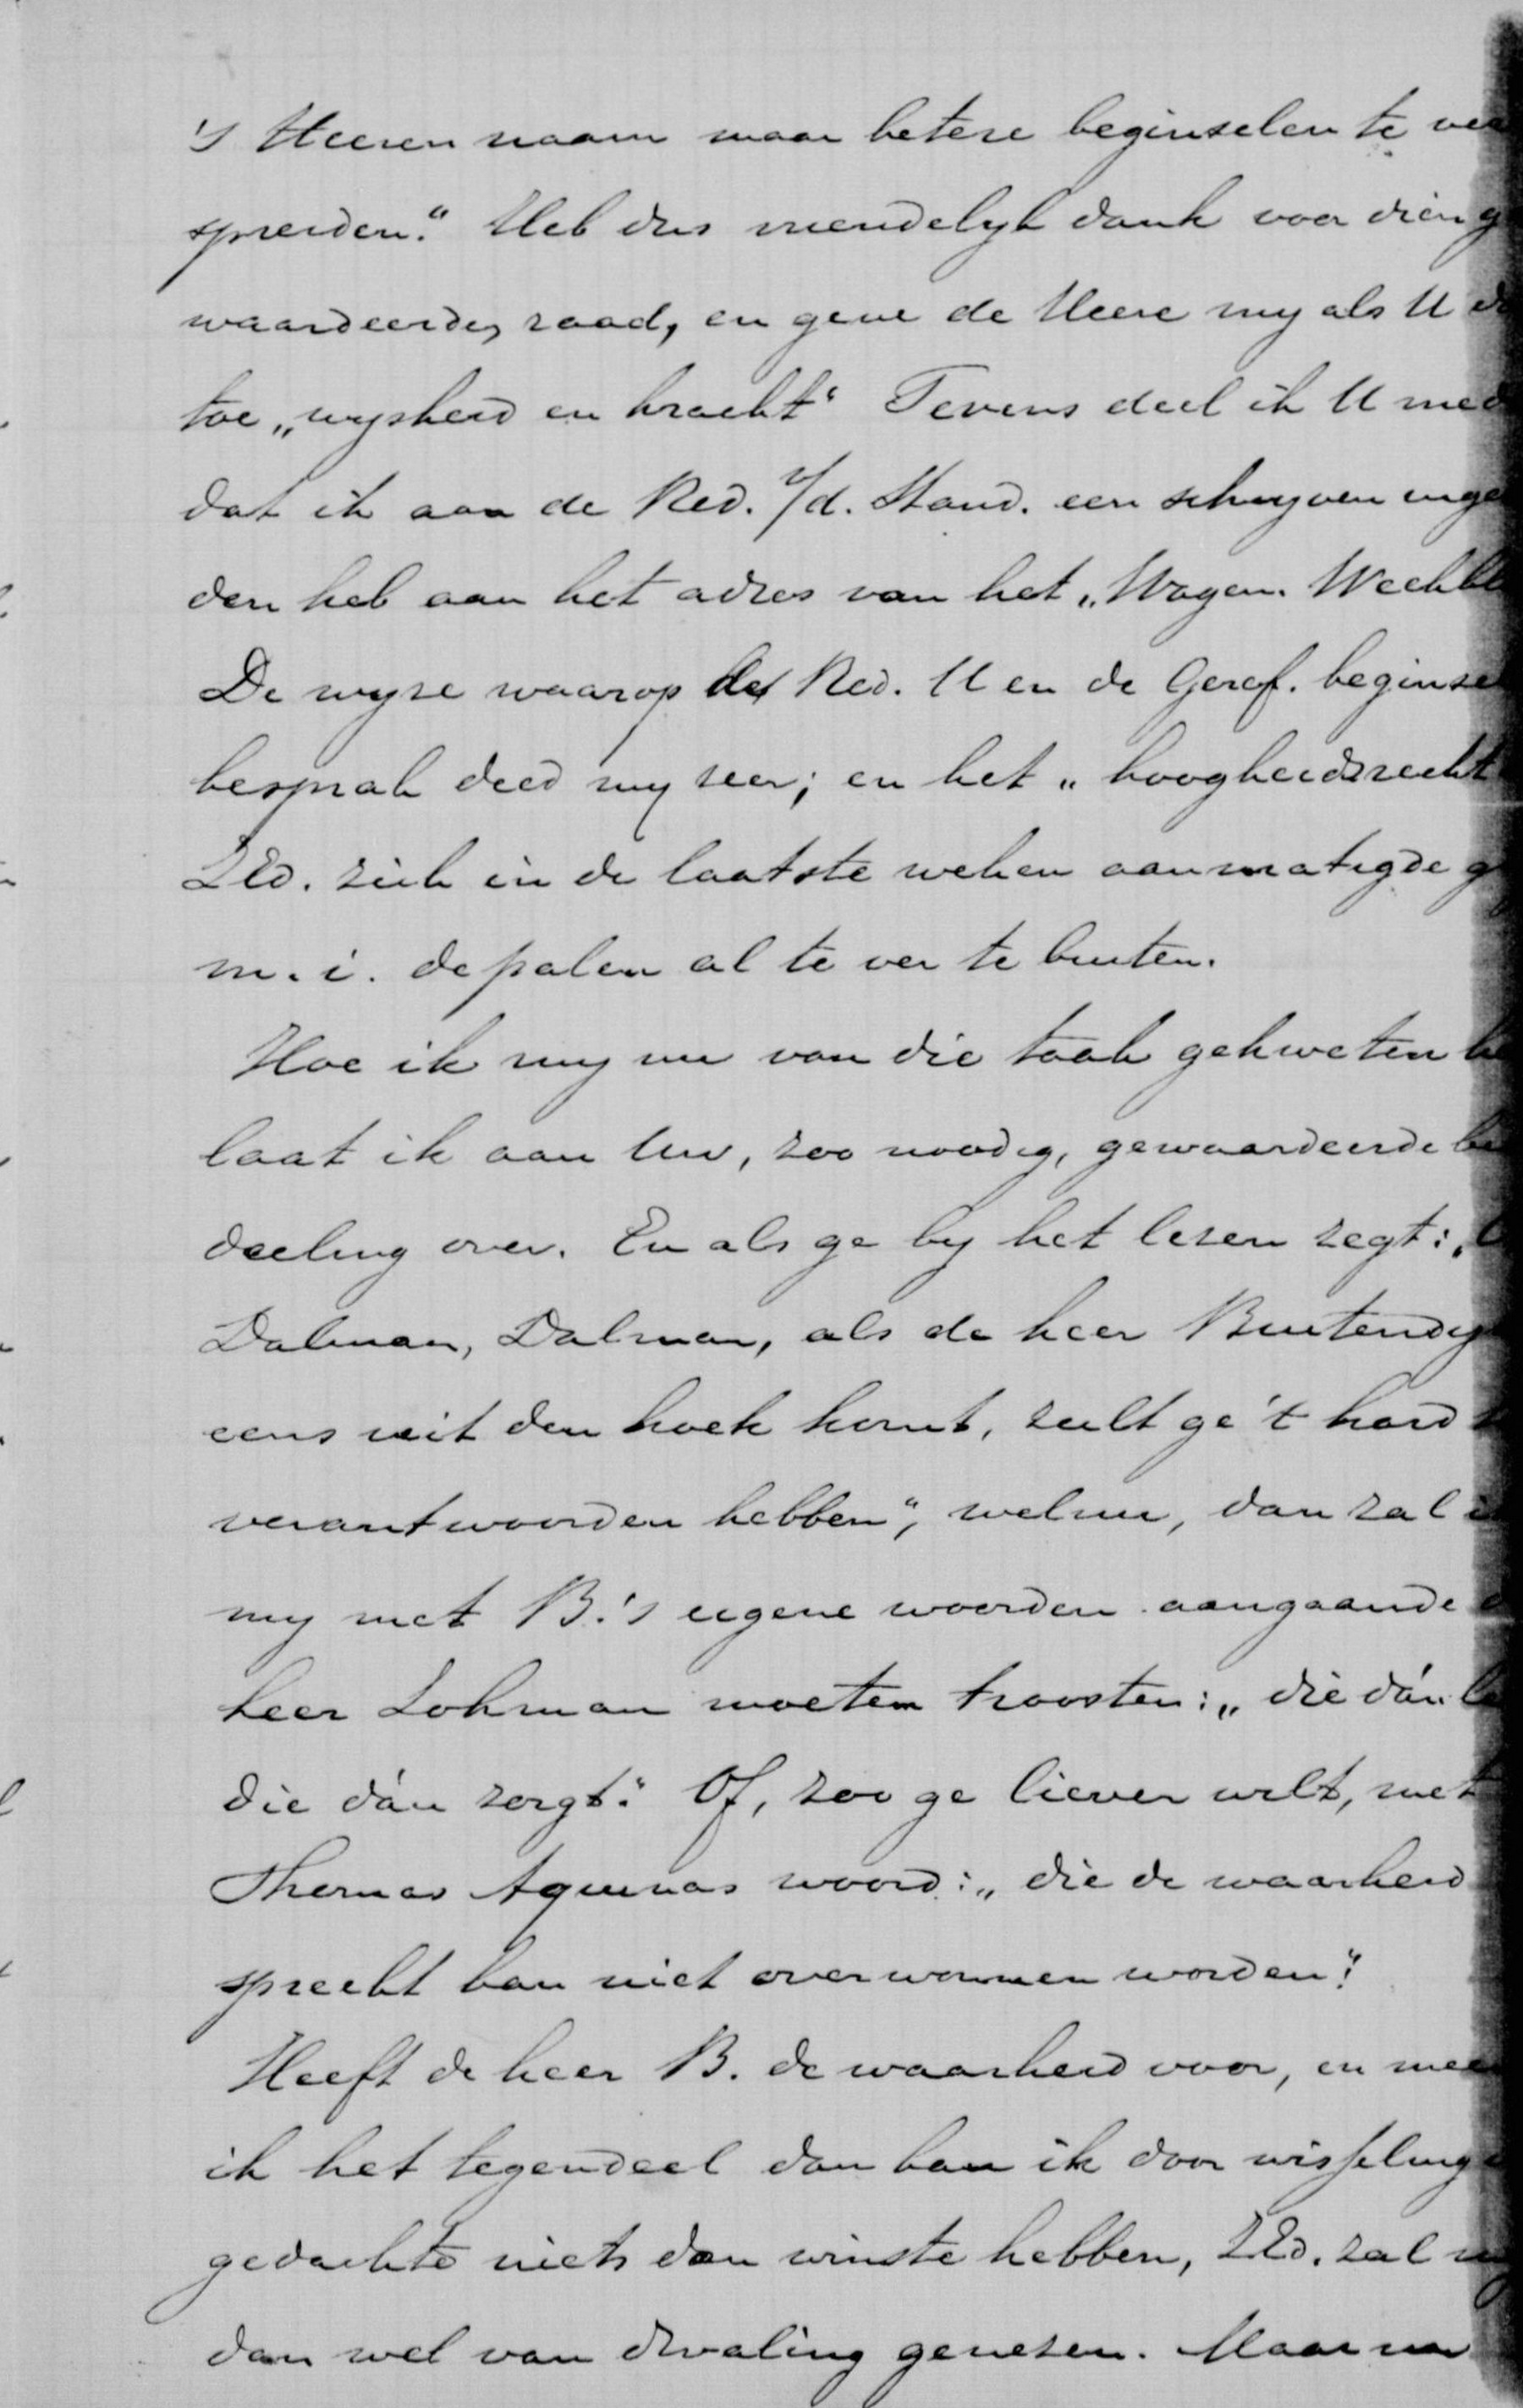 's Heeren naam maar betere beginselen te ver
spreiden." Heb dus vriendelyk dank voor dien ge
waardeerden raad, en geve de Heere my als U
toe „wysheid en kracht" Tevens deel ik U mede
dat ik aan de Red. v/d. Stand. een schryven inge
den heb aan het adres van het „Wagen. Weekbl
De wyze waarop de Red. U en de Geref. beginsel
besprak deed my zeer; en het „hoogheidsrecht
ZEd. zich in de laatste weken aanmatigde g
m. i. de palen al te ver te buiten.
Hoe ik my nu van die taak gekweten he
laat ik aan Uw, zoo noodig, gewaardeerde be
deeling over. En als ge by het lezen zegt: „
Dalman, Dalman, als de heer Buitendyk
eens uit den hoek komt, zult ge 't hard
verantwoorden hebben", welnu, dan zal ik
my met B.'s eigene woorden aangaande
heer Lohman moeten troosten: „die dán le
die dán zorgt." Of, zoo ge liever wilt, met
Thomas Aquinas woord: „die de waarheid
spreekt kan niet overwonnen worden".
Heeft de heer B. de waarheid voor, en mee
ik het tegendeel dan kan ik door wisseling
gedachte niets dan winste hebben, ZEd. zal my
dan wel van dwaling genezen. Maar